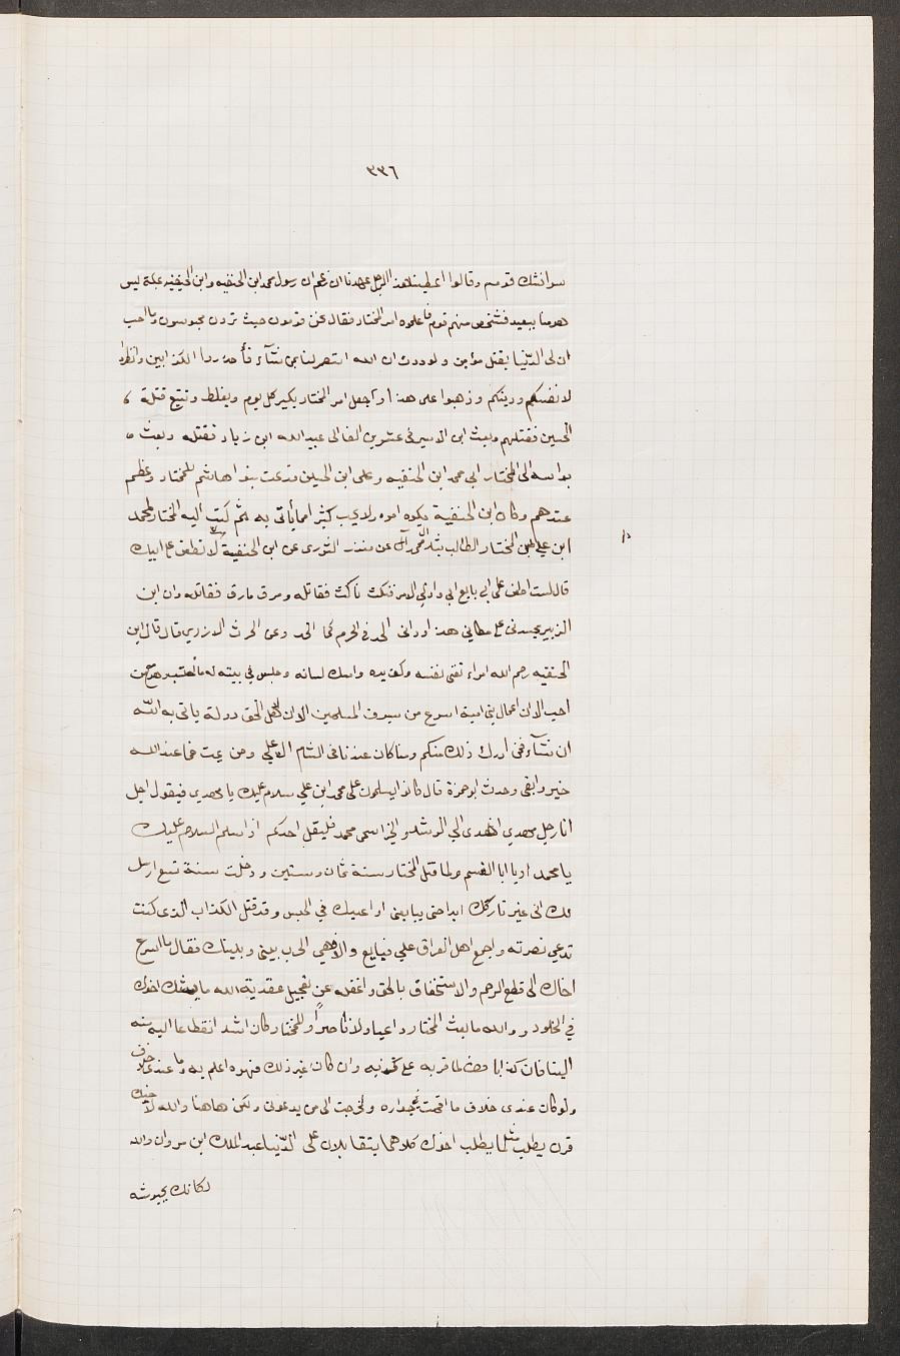 ٣٣٦
سوا نشك قدوسم وقالوا اعطيناهذا الرجل عهدنا ان زعم ان رسول محمد ابن الحنفيه وابن الحنفيه بمكة ليس
هو منا ببعيد فشخص منهم قوم فاعلموه امر المختار فقال نحن قوم حيث ترون محبوسون وما احب
ان لى الدّنيا بقتل مؤمن ولوددت ان الله انتصر لنا بمن شآء فأحذروا الكذابين وانظروا
لانفسكم ودينكم وذهبوا على هذا وجعل امر المختار يكبر كل يوم ويغلظ وتتبع قتلة
الحسين فقتلهم وبعث ابن الاشتر في عشرين الفا الى عبيد الله ابن زياد فقتله وبعث
براسه الى المختار الى محمد ابن الحنفيه وعلى ابن الحسين فدعت بنوا هاشم للمختار وعظم
عندهم وكان ابن الحنفية يكره امره ولا يحب كثيرا مما يأتى به ثم كتب اليه المختار لمحمد
ابن علي من المختار الطالب بثار آل محمد عن منذر الثورى عن ابن الحنفية لا تطعن على ابيك
قال لست اطعن على ابي بايع ابي واولى الامر فنكث ناكث فقاتله ومرق مارق فقاتله وان ابن
الزبير يحسدنى على مكاني هذا ود انى الحد في الحرم كما الحد وعن الحرث الازدي قال قال ابن
الحنفيه رحم الله امراء نفى نفسه وكف يده وامسك لسانه وجلس في بيته له ما احتسب وهو مع من
احب الا ان اعمال بنى امية اسرع من سيوف المسلمين الا ان لاهل الحق دولة ياتى به الله
ان شآء فمن ادرك ذلك منكم ومنا كان عندنا فى السنام الاعلي ومن يمت فما عند الله
خير وابقى وحدث ابو حمزة قال كانوا يسلمون على محمد ابن علي سلام عليك يا مهدي فيقول اجل
انا رجل مهدي اهدي الي الرشد والخير اسمى محمد فليقل احدكم اذا سلم السلام عليك
يا محمد او يا ابا القسم ولما قتل المختار سنة ثمان وستين ودخلت سنة تسع ارسل
لك انى غير تاركك ابدا حتى يبايعنى او اعيدك في الحبس وقد قتل الكذاب الذى كنت
تدعي نصرته واجمع اهل العراق علي فبايع والا فهي الحرب بينى وبينك فقال ما اسرع
اخاك الى قطع الرحم والاستخفاف بالحق واغفله عن تعجيل عقدية الله ما يشك اخوك
في الخلود ووالله مابعث المختار داعيا ولا ناصرا وللمختار كان اشد انقطاعا اليه منه
الينا فان كان كذابا فطالما قربه على كذبه وان كان غير ذلك فهو اعلم به وما عندى خلاف
ولو كان عندى خلاف ما اقمت بجواره ولخرجت الى من يدعونى ولكن هاهنا والله لاخيك
قرن يطلب مثل ما يطلب اخوك كلاهما يتقاتلان على الدّنيا عبد الملك ابن مروان والله
لكانك بجيوشه